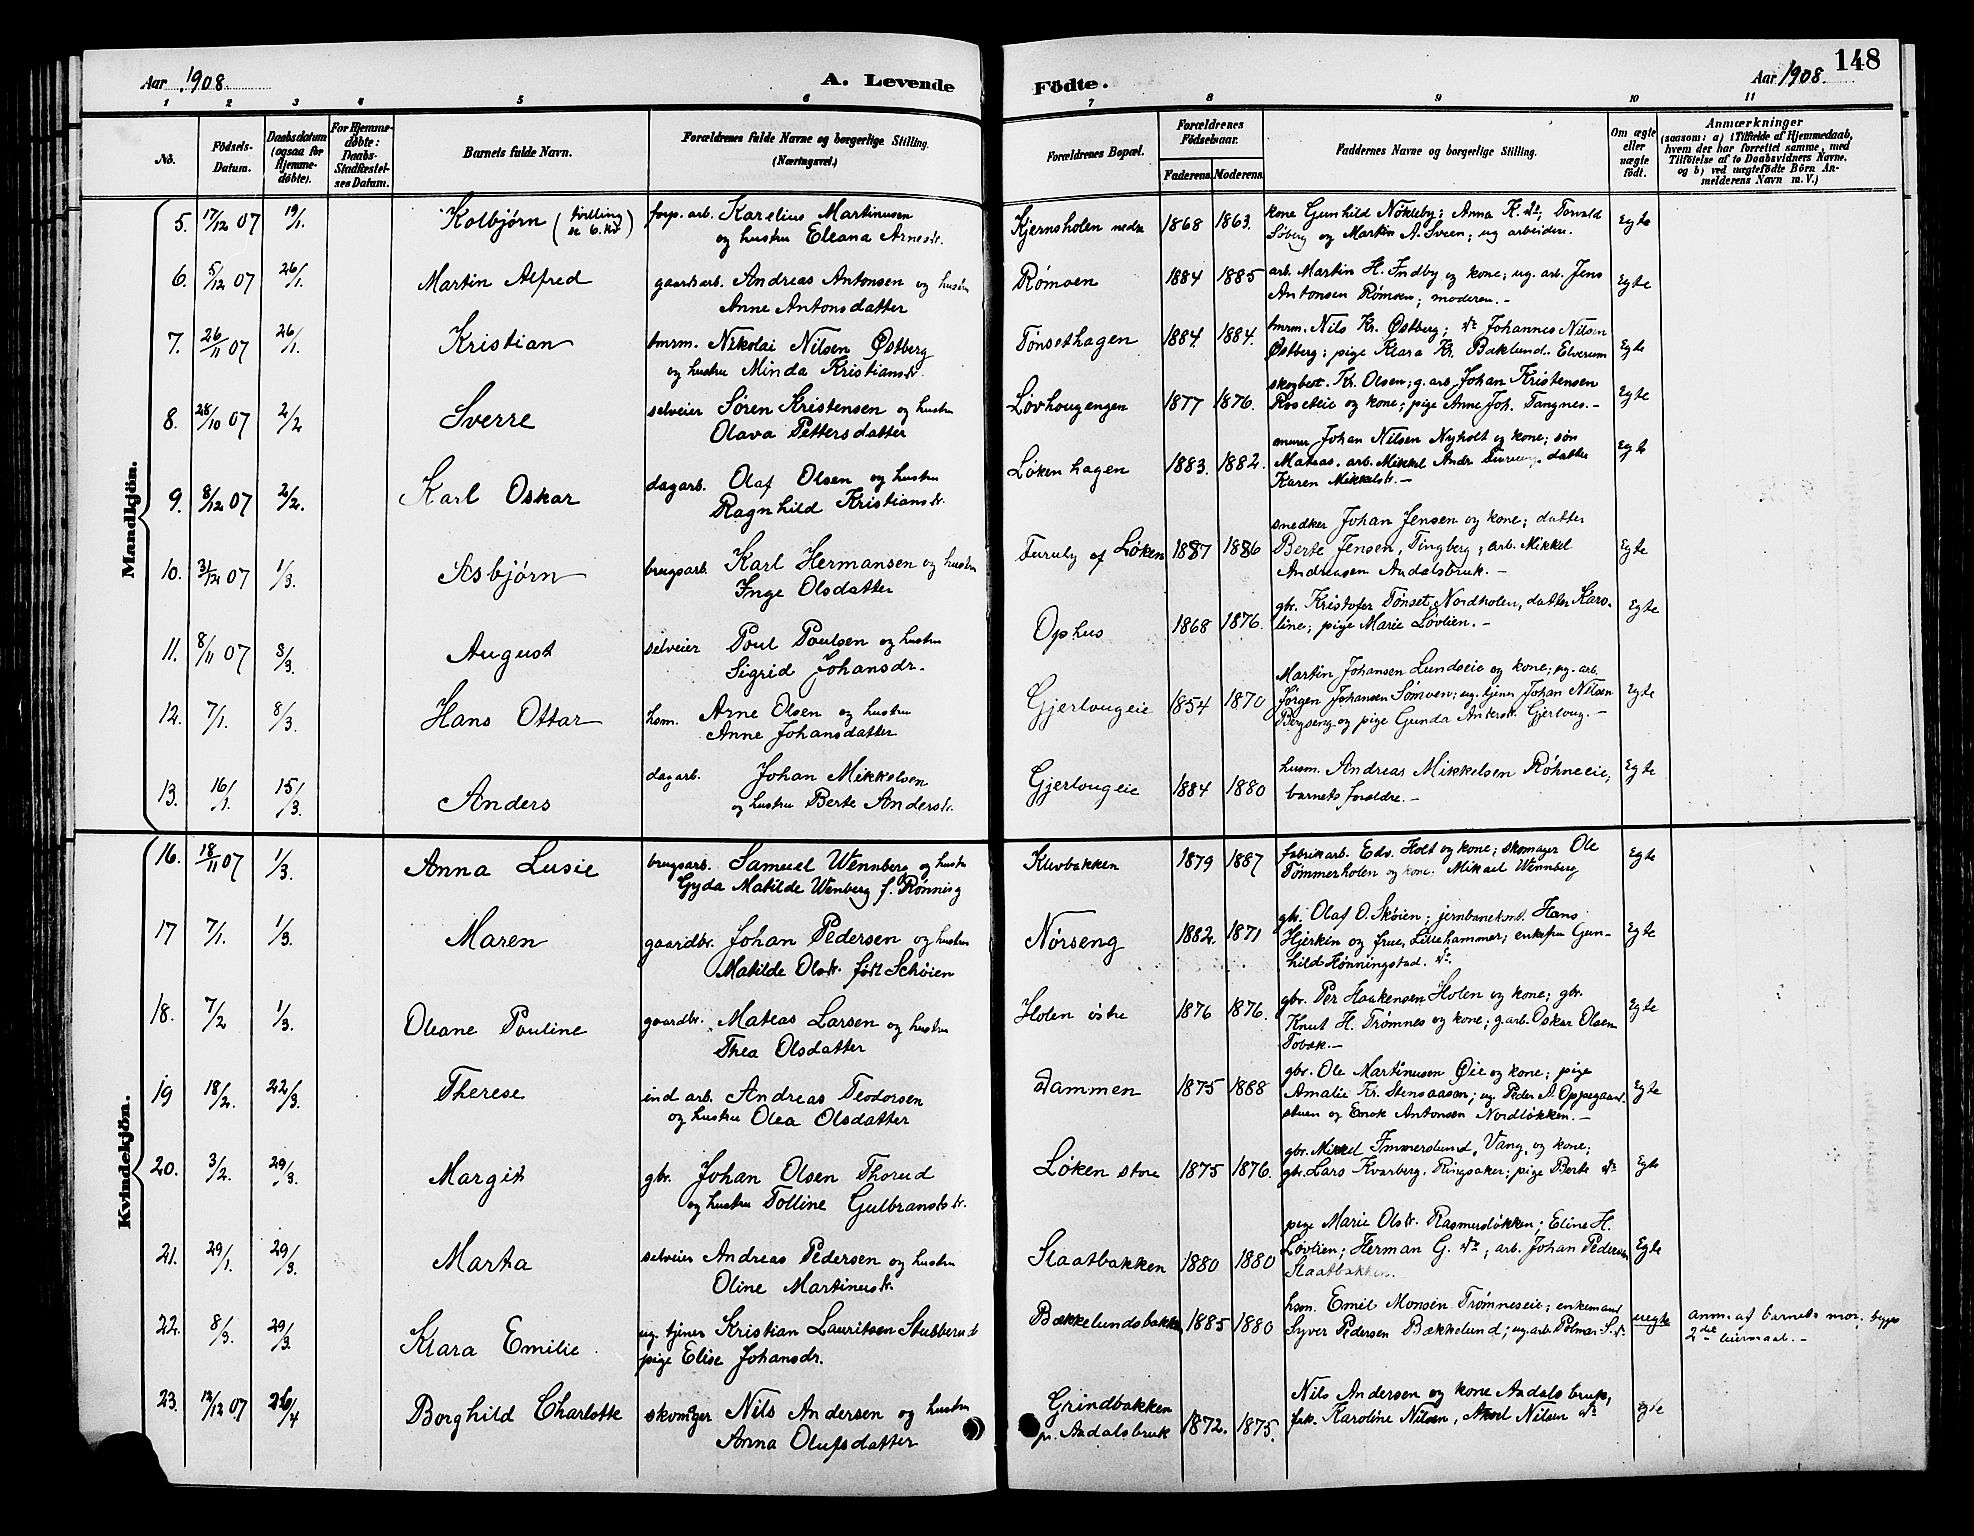 148
Aar 1908. A. Levende Födte. Aar 1908.
1 2 3 4 5 6 7 8 9 10 11
No. Födsels-Datum. Daabsdatum (ogsaa for Hjemme-døbte). For Hjemme-døbte: Daabs-Stadfæstel-ses Datum. Barnets fulde Navn. Forældrenes fulde Navne og borgerlige Stilling. (Næringsvei.) Forældrenes Bopæl. Forældrenes Födselsaar. Faderens. Moderens. Faddernes Navne og borgerlige Stilling. Om ægte eller uægte født. Anmærkninger (saasom: a) i Tilfælde af Hjemmedaab, hvem der har forrettet samme, med Tilföielse af to Daabsvidners Navne. og b) ved uægtefødte Börn An-melderens Navn m. V.)
Mandkjön.
5. 17/12 07 19/1. Kolbjørn (tvilling se 6. kv) forp. arb. Karelius Martinusen
og hustru Eleana Arnesdr. Kjernsholen nedre 1868 1863. kone Gunhild Nøkleby; Anna K. do; Torvald
Søberg og Martin A. Sveen; ug arbeidere. Egte
6. 5/12 07 26/1. Martin Alfred gaardsarb. Andreas Antonsen og hustru
Anne Antonsdatter Rømoen 1884 1885 arb. Martin H. Indby og kone; ug. arb. Jens
Antonsen Rømoen; moderen.- Egte
7. 26/11 07 26/1. Kristian tmrm. Nikolai Nilsen Østberg
og hustru Minda Kristiansdr. Tønsethagen 1884. 1884. tmrm. Nils Kr. Østberg; do Johannes Nilsen
Østberg; pige Klara Kr. Baklund. Elverum Egte
8. 28/10 07 2/2 Sverre selveier Søren Kristensen og hustru
Olava Pettersdatter Løvhougengen 1877 1876. skogbest. Kr. Olsen; g. arb. Johan Kristensen
Roseteie og kone; pige Anne Joh. Tangnes.- Egte
9. 8/12 07 2/2. Karl Oskar dagarb. Olaf Olsen og hustru
Ragnhild Kristiansdr. Løkenhagen 1883. 1882. murer Johan Nilsen Nyholt og kone; søn
Mateas. arb. Mikkel Andr. datter
Karen Mikkelsdr.- Egte
10. 3/12 07 1/3. Asbjørn brugsarb. Karl Hermansen og hustru
Inge Olsdatter Furuly af Løken 1887 1886 snedker Johan Jensen og kone; datter
Berte Jensen, Tingberg; arb. Mikkel
Andreasen Aadalsbruk.- Egte
11. 8/11 07 8/3. August selveier Poul Poulsen og hustru
Sigrid Johansdr. Ophus 1868 1876. gbr. Kristofer Tønset, Nordholen, datter Karo-
line; pige Marie Løvlien.- Egte
12. 7/1. 8/3. Hans Ottar hsm. Arne Olsen og hustru
Anne Johansdatter Gjerlougeie 1854 1870 Martin Johansen Lundseie og kone; ug. arb.
Jørgen Johansen Sømoen; ug. tjener Johan Nilsen
Bergseng og pige Gunda Andersdr. Gjerloug.- Egte
13. 16/1. 15/3. Anders dagarb. Johan Mikkelsen
og hustru Berte Andersdr. Gjerlougeie 1884 1880 husm. Andreas Mikkelsen Røhneeie,
barnets foreldre.- Egte
Kvindekjön.
16. 18/11 07 1/3. Anna Lusie brugsarb. Samuel Wennberg og hustru
Gyda Matilde Wenberg f. Rønning Kluvbakken 1879 1887 fabrikarb. Edv. Holt og kone; skomager Ole
Tømmerholen og kone. Mikael Wennberg Egte
17 7/1. 1/3. Maren gaardbr. Johan Pedersen og hustru
Matilde Olsdr. født Schøien Nørseng 1882. 1871 gbr. Olaf O. Skøien; jernbanekond. Hans
Hjerkin og frue, Lillehammer; enkefru Gun-
hild Hønningstad. do. Egte
18. 7/2 1/3. Oleane Pauline gaardbr. Mateas Larsen og hustru
Thea Olsdatter Holen østre 1876 1876. gbr. Per Haakensen Holen og kone; gbr.
Knut H. Trømnes og kone; g.arb. Oskar Olsen
Tobak.- Egte
19 18/2. 22/3. Therese ind arb. Andreas Teodorsen
og hustru Olea Olsdatter Dammen 1875 1888 gbr. Ole Martinusen Øie og kone; pige
Amalie Kr. Stensaasen; ug. Peder A. Oppegaard-
stuen og Enok Antonsen Nordløkken.- Egte
20. 3/2. 29/3. Margit gbr. Johan Olsen Thorud
og hustru Tolline Gulbransdr. Løken store 1875 1876. gbr. Mikkel Immerslund, Vang, og kone;
gbr. Lars Kvarberg. Ringsaker; pige Berte do Egte
21. 29/1. 29/3. Marta selveier Andreas Pedersen og hustru
Oline Martinusdr. Slaatbakken 1880 1880 pige Marie Olsdr. Rasmusløkken; Eline H.
Løvlien; Herman G. do; arb. Johan Pedersen
Slaatbakken. Egte
22. 8/3. 29/3. Klara Emilie. ug. tjener Kristian Lauritsen Stubberud
pige Elise Johansdr. Bækkelundsbakken 1885 1880 hsm. Emil Monsen Trømneseie; enkemand
Syver Pedersen Bækkelund; ug. arb. Polmar S. do uegte anm. af barnets mor, begges
2de leiermaal.-
23. 12/12 07 26/4 Borghild Charlotte skomager Nils Andersen og hustru
Anna Olufsdatter Grindbakken
pr. Aadalsbruk 1872. 1875. Nils Andersen og kone Aadalsbruk,
fak. Karoline Nilsen, Aksel Nilsen do Egte